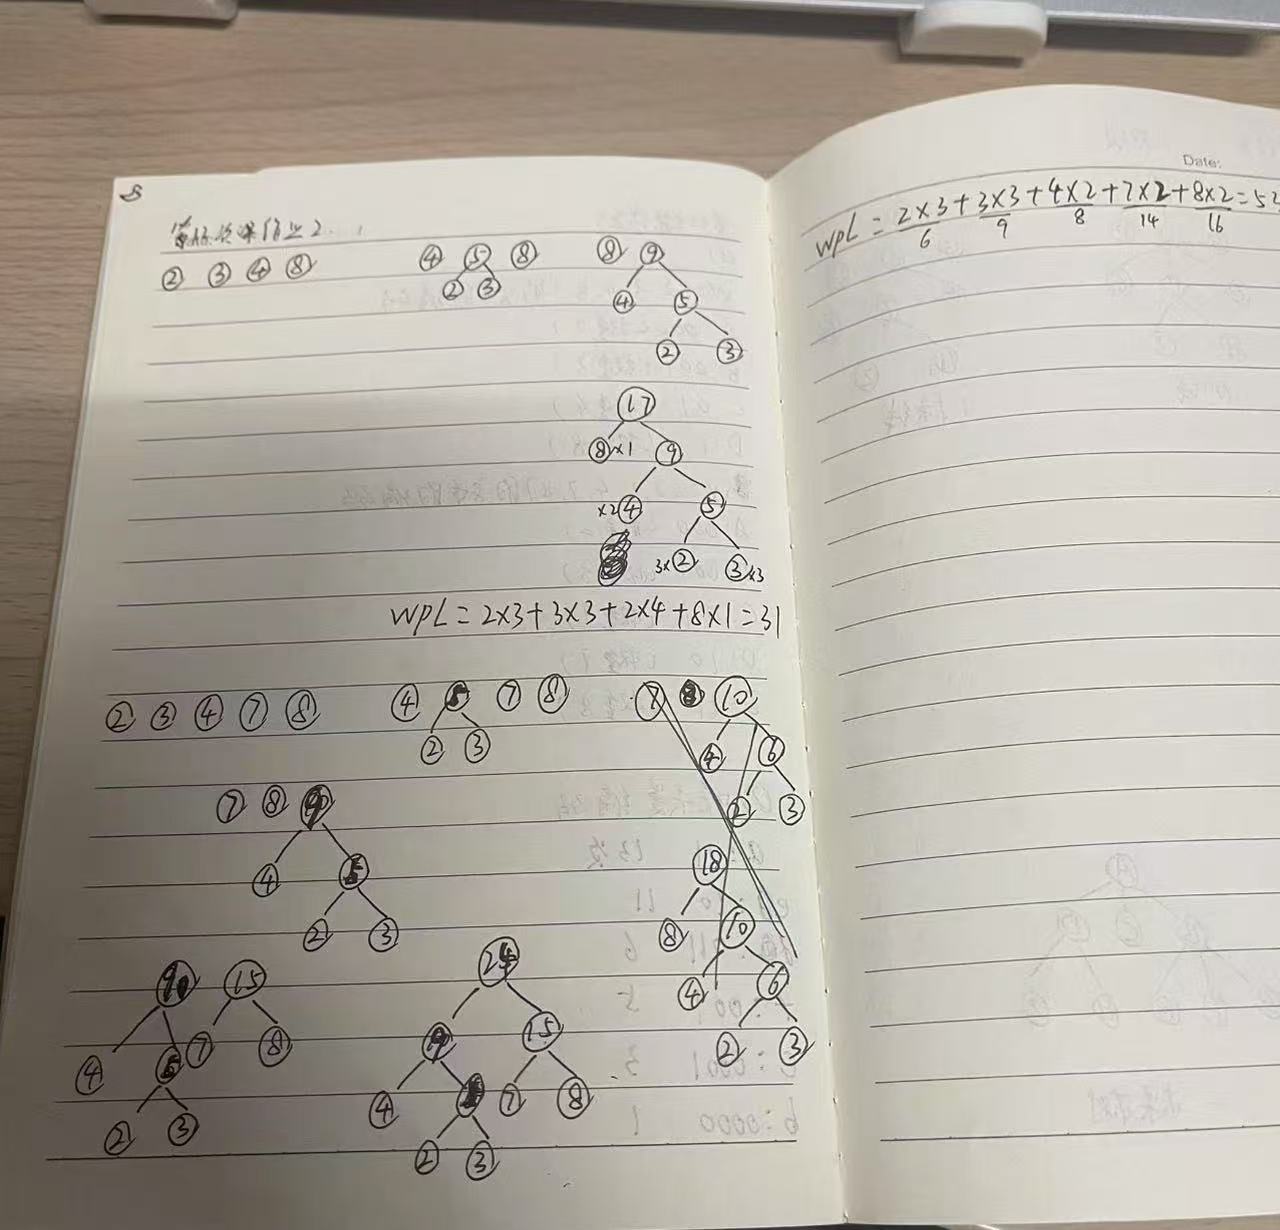 Date:
WPL = 2×3+3×3+4×2+7×2+8×2=52
6 9 8 14 16
8
2 3 4 8
4 5 8
2 3
8 9
4 5
2 3
17
8×1 9
×2 4 5
3×2 3×3
WPL=2×3+3×3+2×4+8×1=31
2 3 4 7 8
4 5 7 8
2 3
7 8 10
4 6
2 3
7 8 9
4 5
2 3
18
8 10
4 6
2 3
9 15
4 5 7 8
2 3
24
9 15
4 5 7 8
2 3